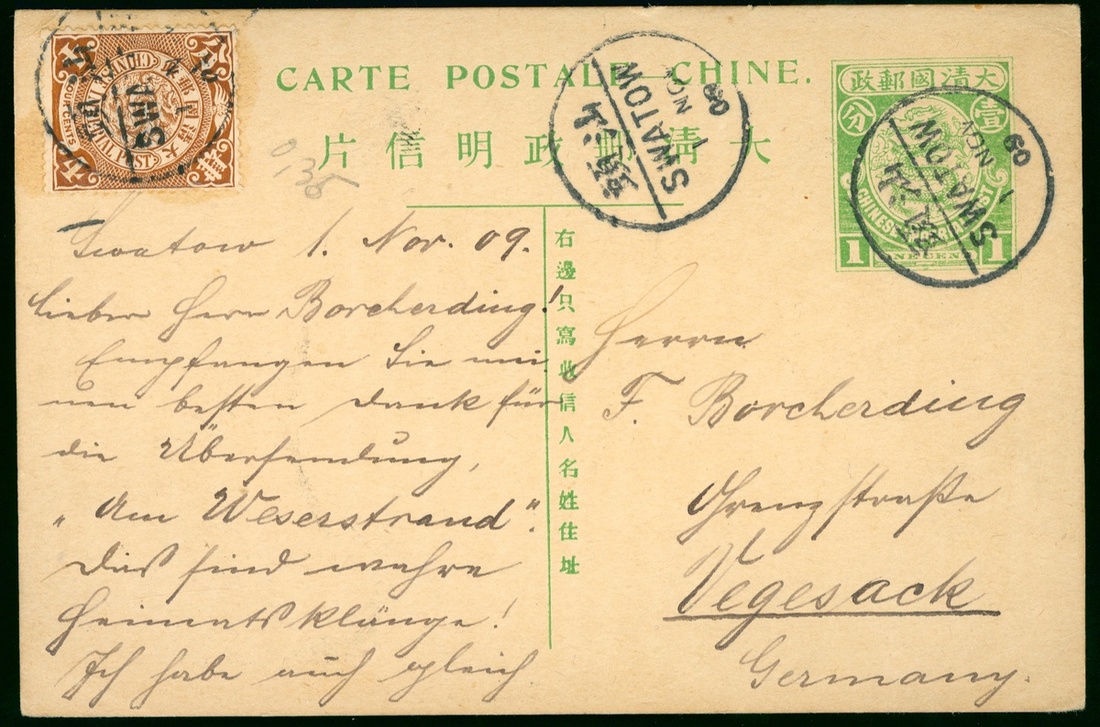 CARTE POSTALE—CHINE.
片信明政郵清大
大清國郵政
壹分
CHINESE IMPERIAL POST
1 ONE CENT 1
CHINESE IMPERIAL POST
FOUR CENTS
SWATOW
1 NOV 09
SWATOW
1 NOV 09
SWA
右邊只寫收信人名姓住址
Swatow 1. Nov. 09.
Lieber Herr Borcherding!
Empfangen Sie mei-
nen besten Dank für
die Übersendung,
„Am Weserstrand".
Das sind wahre
Heimatsklänge!
Ich habe auch gleich
Herrn
F. Borcherding
Grenzstraße
Vegesack
Germany.